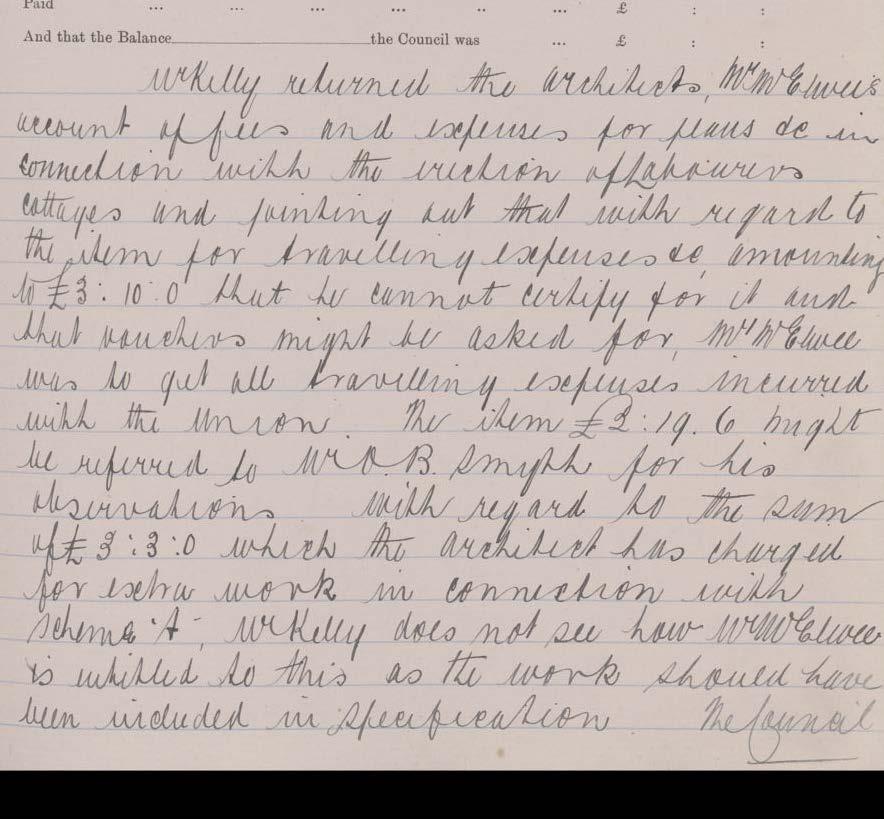 Paid ... ... ... ... .. ... £ : :
And that the Balance the Council was ... £ : :
Mr Kelly returned the architects, Mr McElwee's
account of fees and expenses for plans &c in
connection with the erection of Labourers
cottages and pointing out that with regard to
the item for travelling expenses &c, amounting
to £3:10:0 that he cannot certify for it and
that vouchers might be asked for, Mr McElwee
was to get all travelling expenses incurred
with the Union. The item £2:19.6 might
be referred to Mr O.B. Smyth for his
observations with regard to the sum
of £3:3:0 which the architect has charged
for extra work in connection with
scheme 'A', Mr Kelly does not see how Mr McElwee
is entitled to this as the work should have
been included in specification The Council